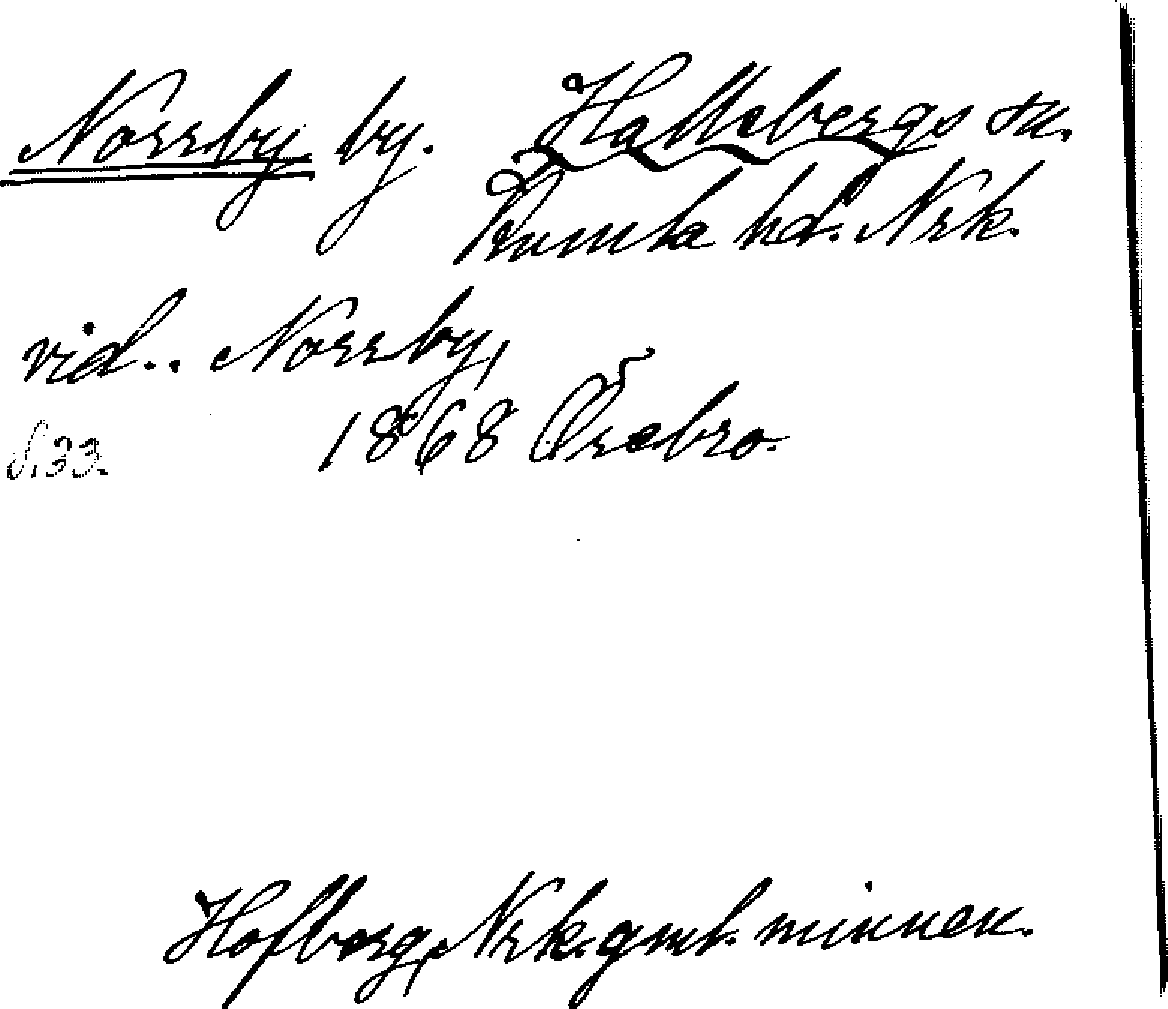 Norrby by. Hallsbergs sn.
Kumla hd. Nrk.
vid.. Norrby,
1868 Örebro.
S.33.
Hofberg, Nrk. gml. minnen.